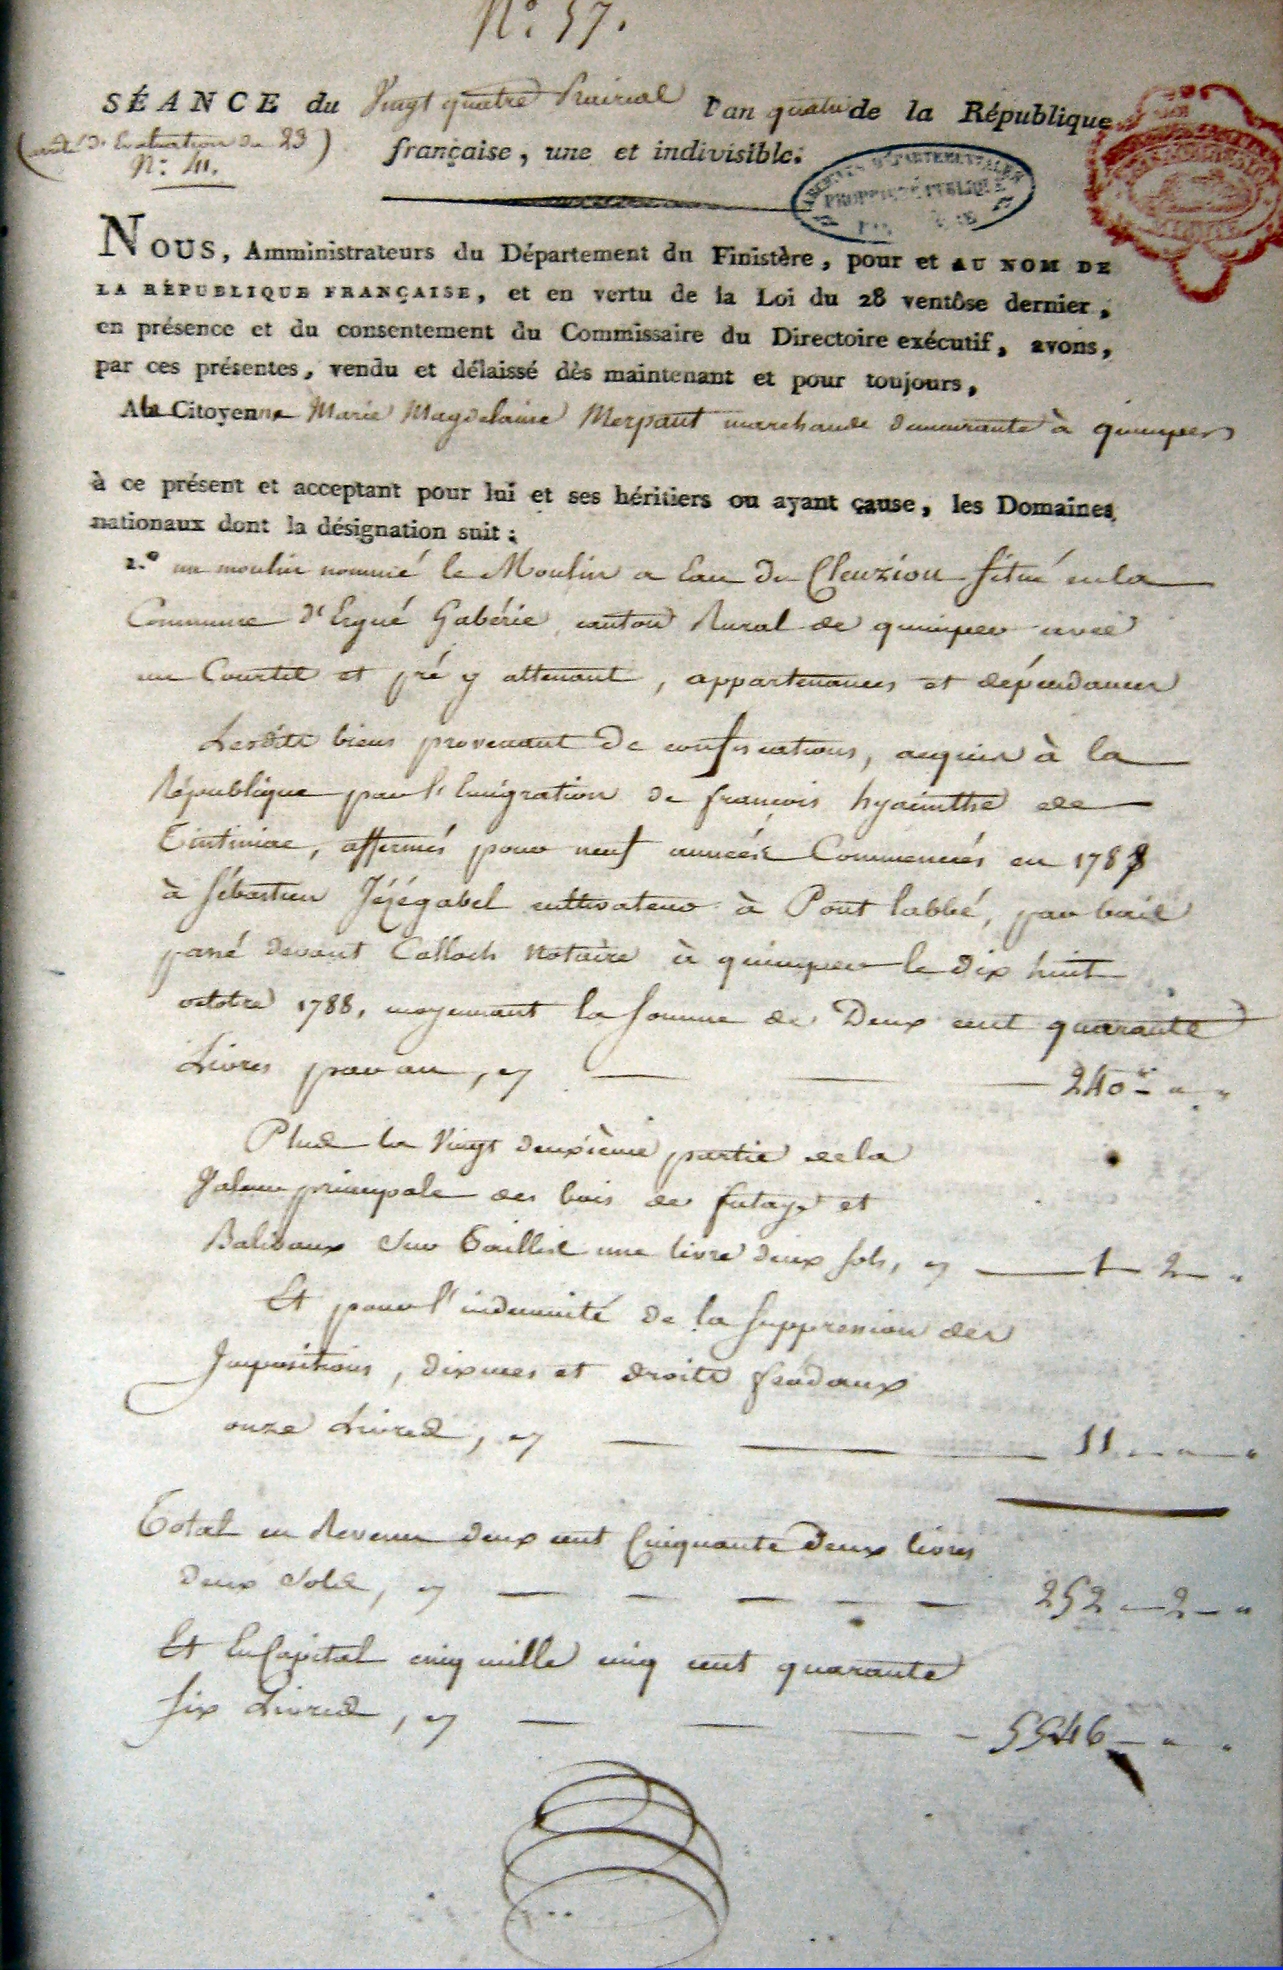 N.° 57.
SÉANCE du Vingt quatre Prairial l'an quatre de la République
( d'Evaluation du 23 )
N.° 41.
française, une et indivisible.
ARCHIVES DÉPARTEMENTALES
PROPRIÉTÉ PUBLIQUE
NOUS, Amministrateurs du Département du Finistère, pour et AU NOM DE
LA RÉPUBLIQUE FRANÇAISE, et en vertu de la Loi du 28 ventôse dernier,
en présence et du consentement du Commissaire du Directoire exécutif, avons,
par ces présentes, vendu et délaissé dès maintenant et pour toujours,
A la Citoyenne Marie Magdelaine Merpaut marchande demeurante à quimper
à ce présent et acceptant pour lui et ses héritiers ou ayant çause, les Domaines
nationaux dont la désignation suit :
1.° un moulin nommé le Moulin a Eau du Cleuziou Situé en la
Commune d'Ergué Gabéric canton Rural de quimper avec
un Courtil et pré y attenant, appartenances et dépendances
Lesdits biens provenant de confiscations, acquis à la
République par l'Emigration de françois hyacinthe de
Tintiniac, affermés pour neuf années Commencées en 1788
à Sébastien Jézégabel cultivateur à Pont labbé, par bail
passé devant Calloch Notaire à quimper le dix huit
octobre 1788, moyennant la Somme de Deux cent quarante
Livres par an, cy — — — 240 ₶ " "
Plus la Vingt deuxième partie de la
Valeur principale des bois de futaye et
Balivaux Sur Taillis une livre deux sols, cy — 1 — 2 — "
Et pour l'indemnité de la Suppression des
Impositions, dixmes et droits féodaux
onze Livres, cy — — 11 — " — "
Total en Revenu deux cent Cinquante Deux livres
deux Sols, cy — — — — — 252 — 2 — "
Et En Capital cinq mille cinq cent quarante
six Livres, cy — — — — 5546 — " — "